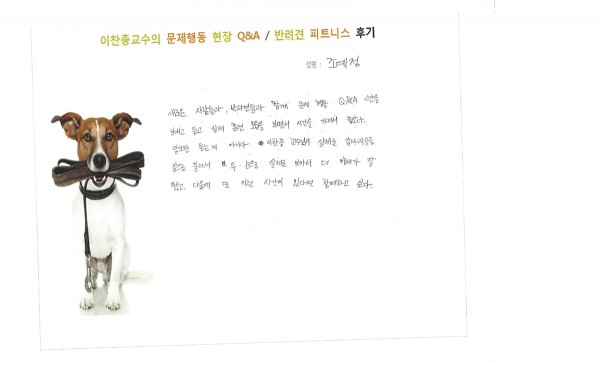 이찬종교수의 문제행동 현장 Q&A / 반려견 피트니스 후기
성명 : 조예정
새로운 사람들과, 반려견들과 함께 문제 행동 Q&A 시간을
보내고 듣고 실제 훈련 보면서 시간을 가져서 좋았다.
말로만 듣는게 아니라 이찬종 교수님께서 실제로 강아지들을
앞으로 불러서 두 눈으로 실제로 보아서 더 이해가 잘
됐고, 다음에 또 이런 시간이 있다면 함께하고 싶다.